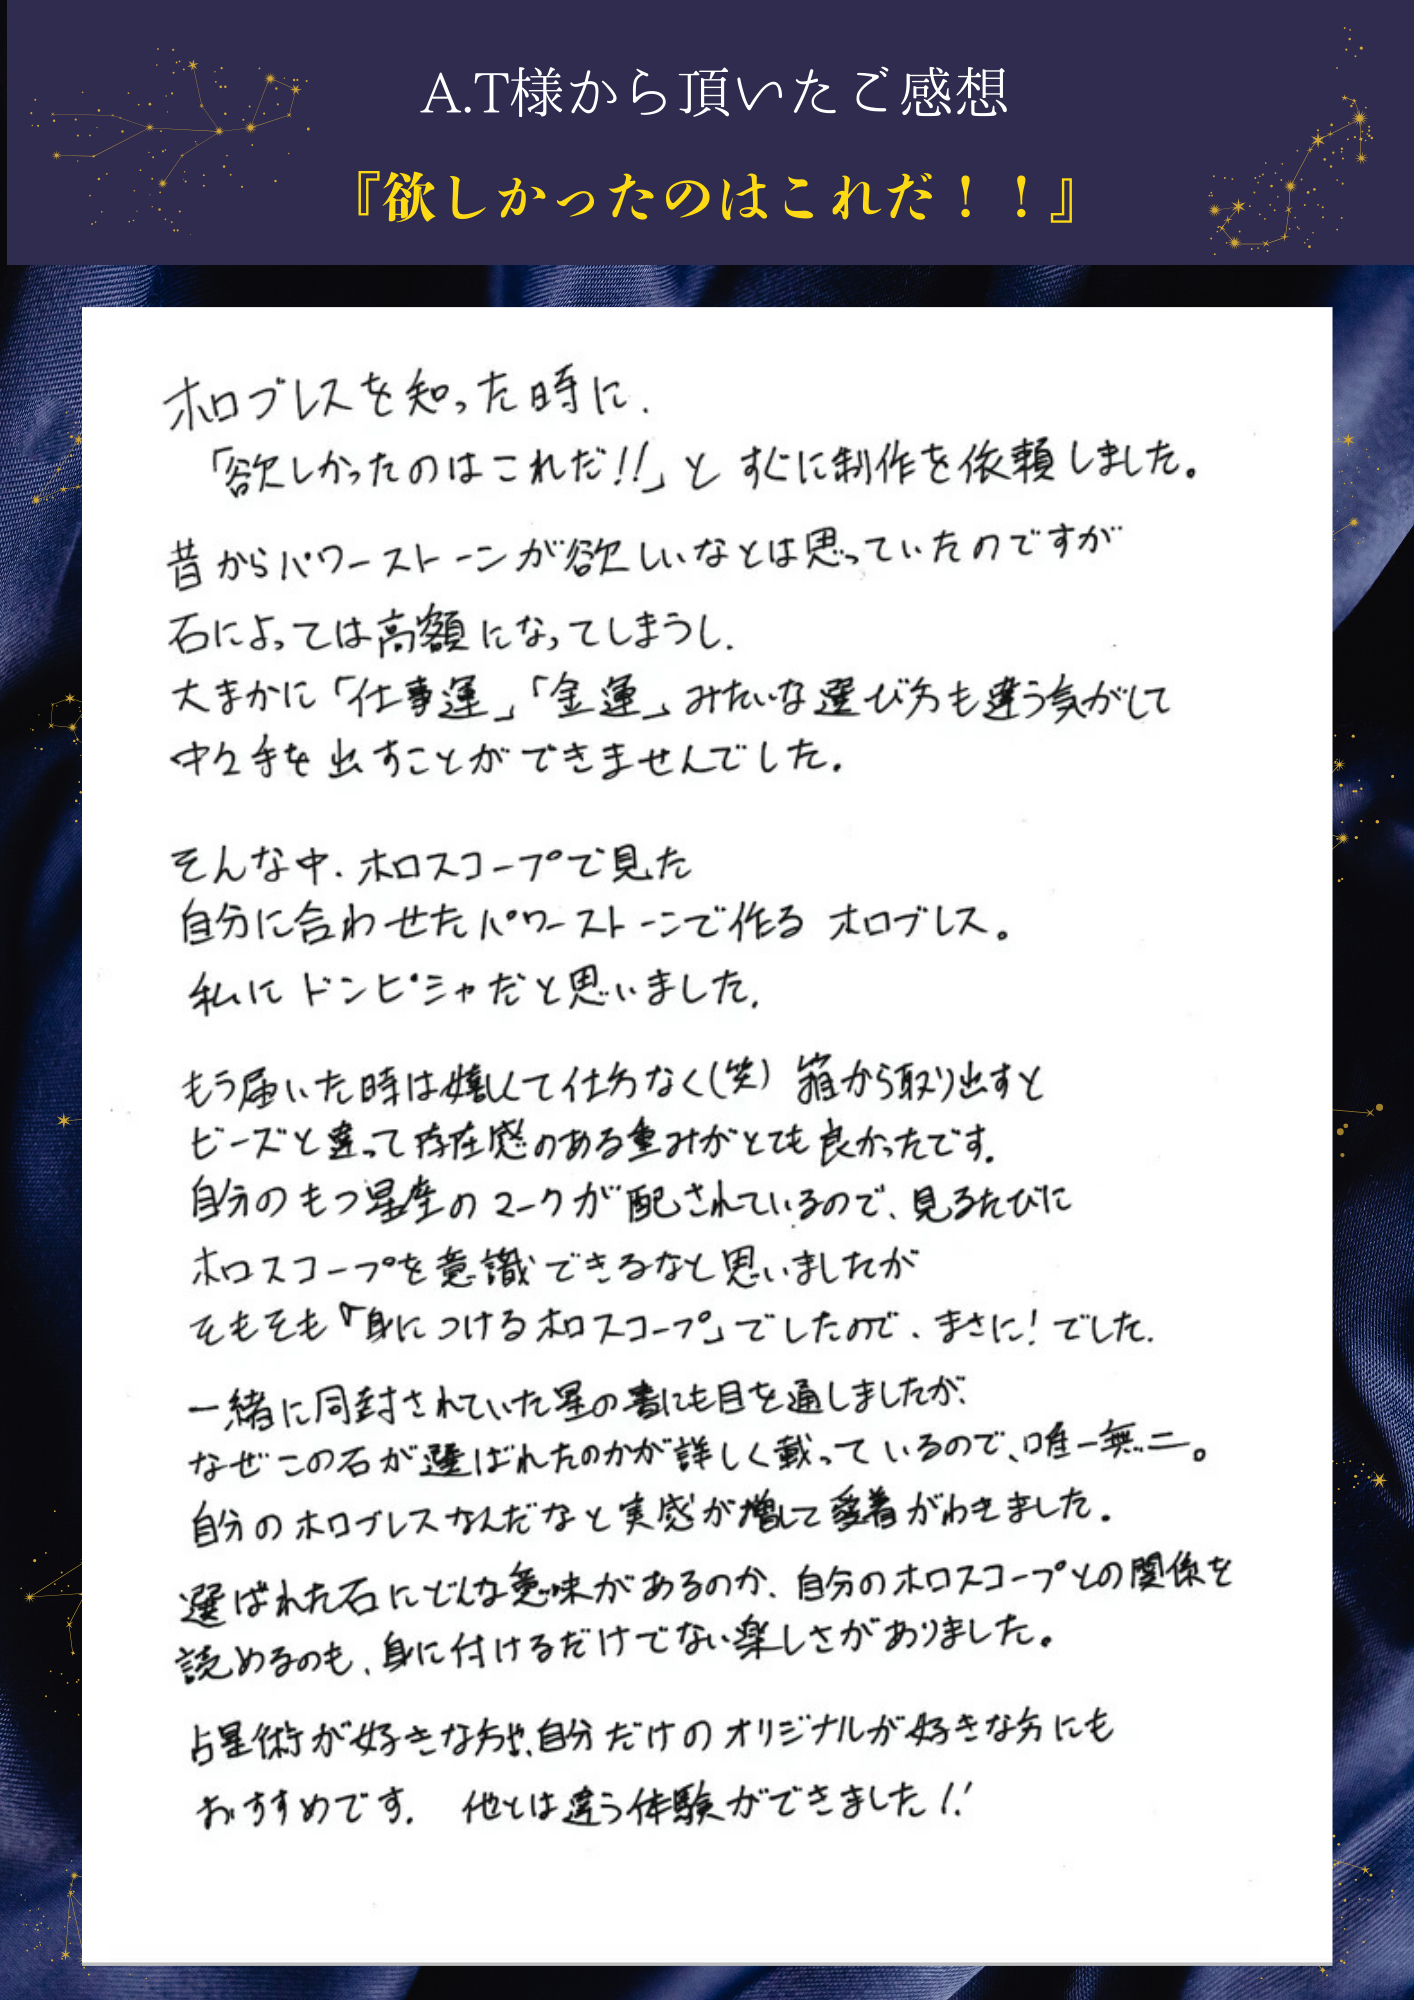 A.T様から頂いたご感想
『欲しかったのはこれだ！！』
ホロブレスを知った時に、
「欲しかったのはこれだ!!」と すぐに制作を依頼しました。
昔からパワーストーンが欲しいなとは思っていたのですが
石によっては高額になってしまうし、
大まかに「仕事運」「金運」みたいな選び方も違う気がして
中々手を出すことができませんでした。
そんな中、ホロスコープで見た
自分に合わせたパワーストーンで作る ホロブレス。
私にドンピシャだと思いました。
もう届いた時は嬉しくて仕方なく(笑) 箱から取り出すと
ビーズと違って存在感のある重みがとても良かったです。
自分のもつ星座のマークが配されているので、見るたびに
ホロスコープを意識できるなと思いましたが
そもそも『身につけるホロスコープ』でしたので、まさに！でした。
一緒に同封されていた星の書にも目を通しましたが、
なぜこの石が選ばれたのかが詳しく載っているので、唯一無二。
自分のホロブレスなんだなと実感が増して愛着がわきました。
選ばれた石にどんな意味があるのか、自分のホロスコープとの関係を
読めるのも、身に付けるだけでない楽しさがありました。
占星術が好きな方や、自分だけのオリジナルが好きな方にも
おすすめです。 他とは違う体験ができました!!